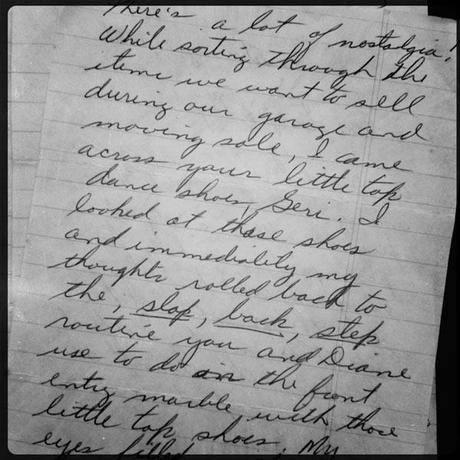 There's a lot of nostalgia!
While sorting through the
items we want to sell
during our garage and
moving sale, I came
across your little tap
dance shoes, Geri. I
looked at those shoes
and immediatily my
thoughts rolled back to
the, slap, back, step
routine you and Diane
use to do on the front
entry marble, with those
little tap shoes. My
eyes filled